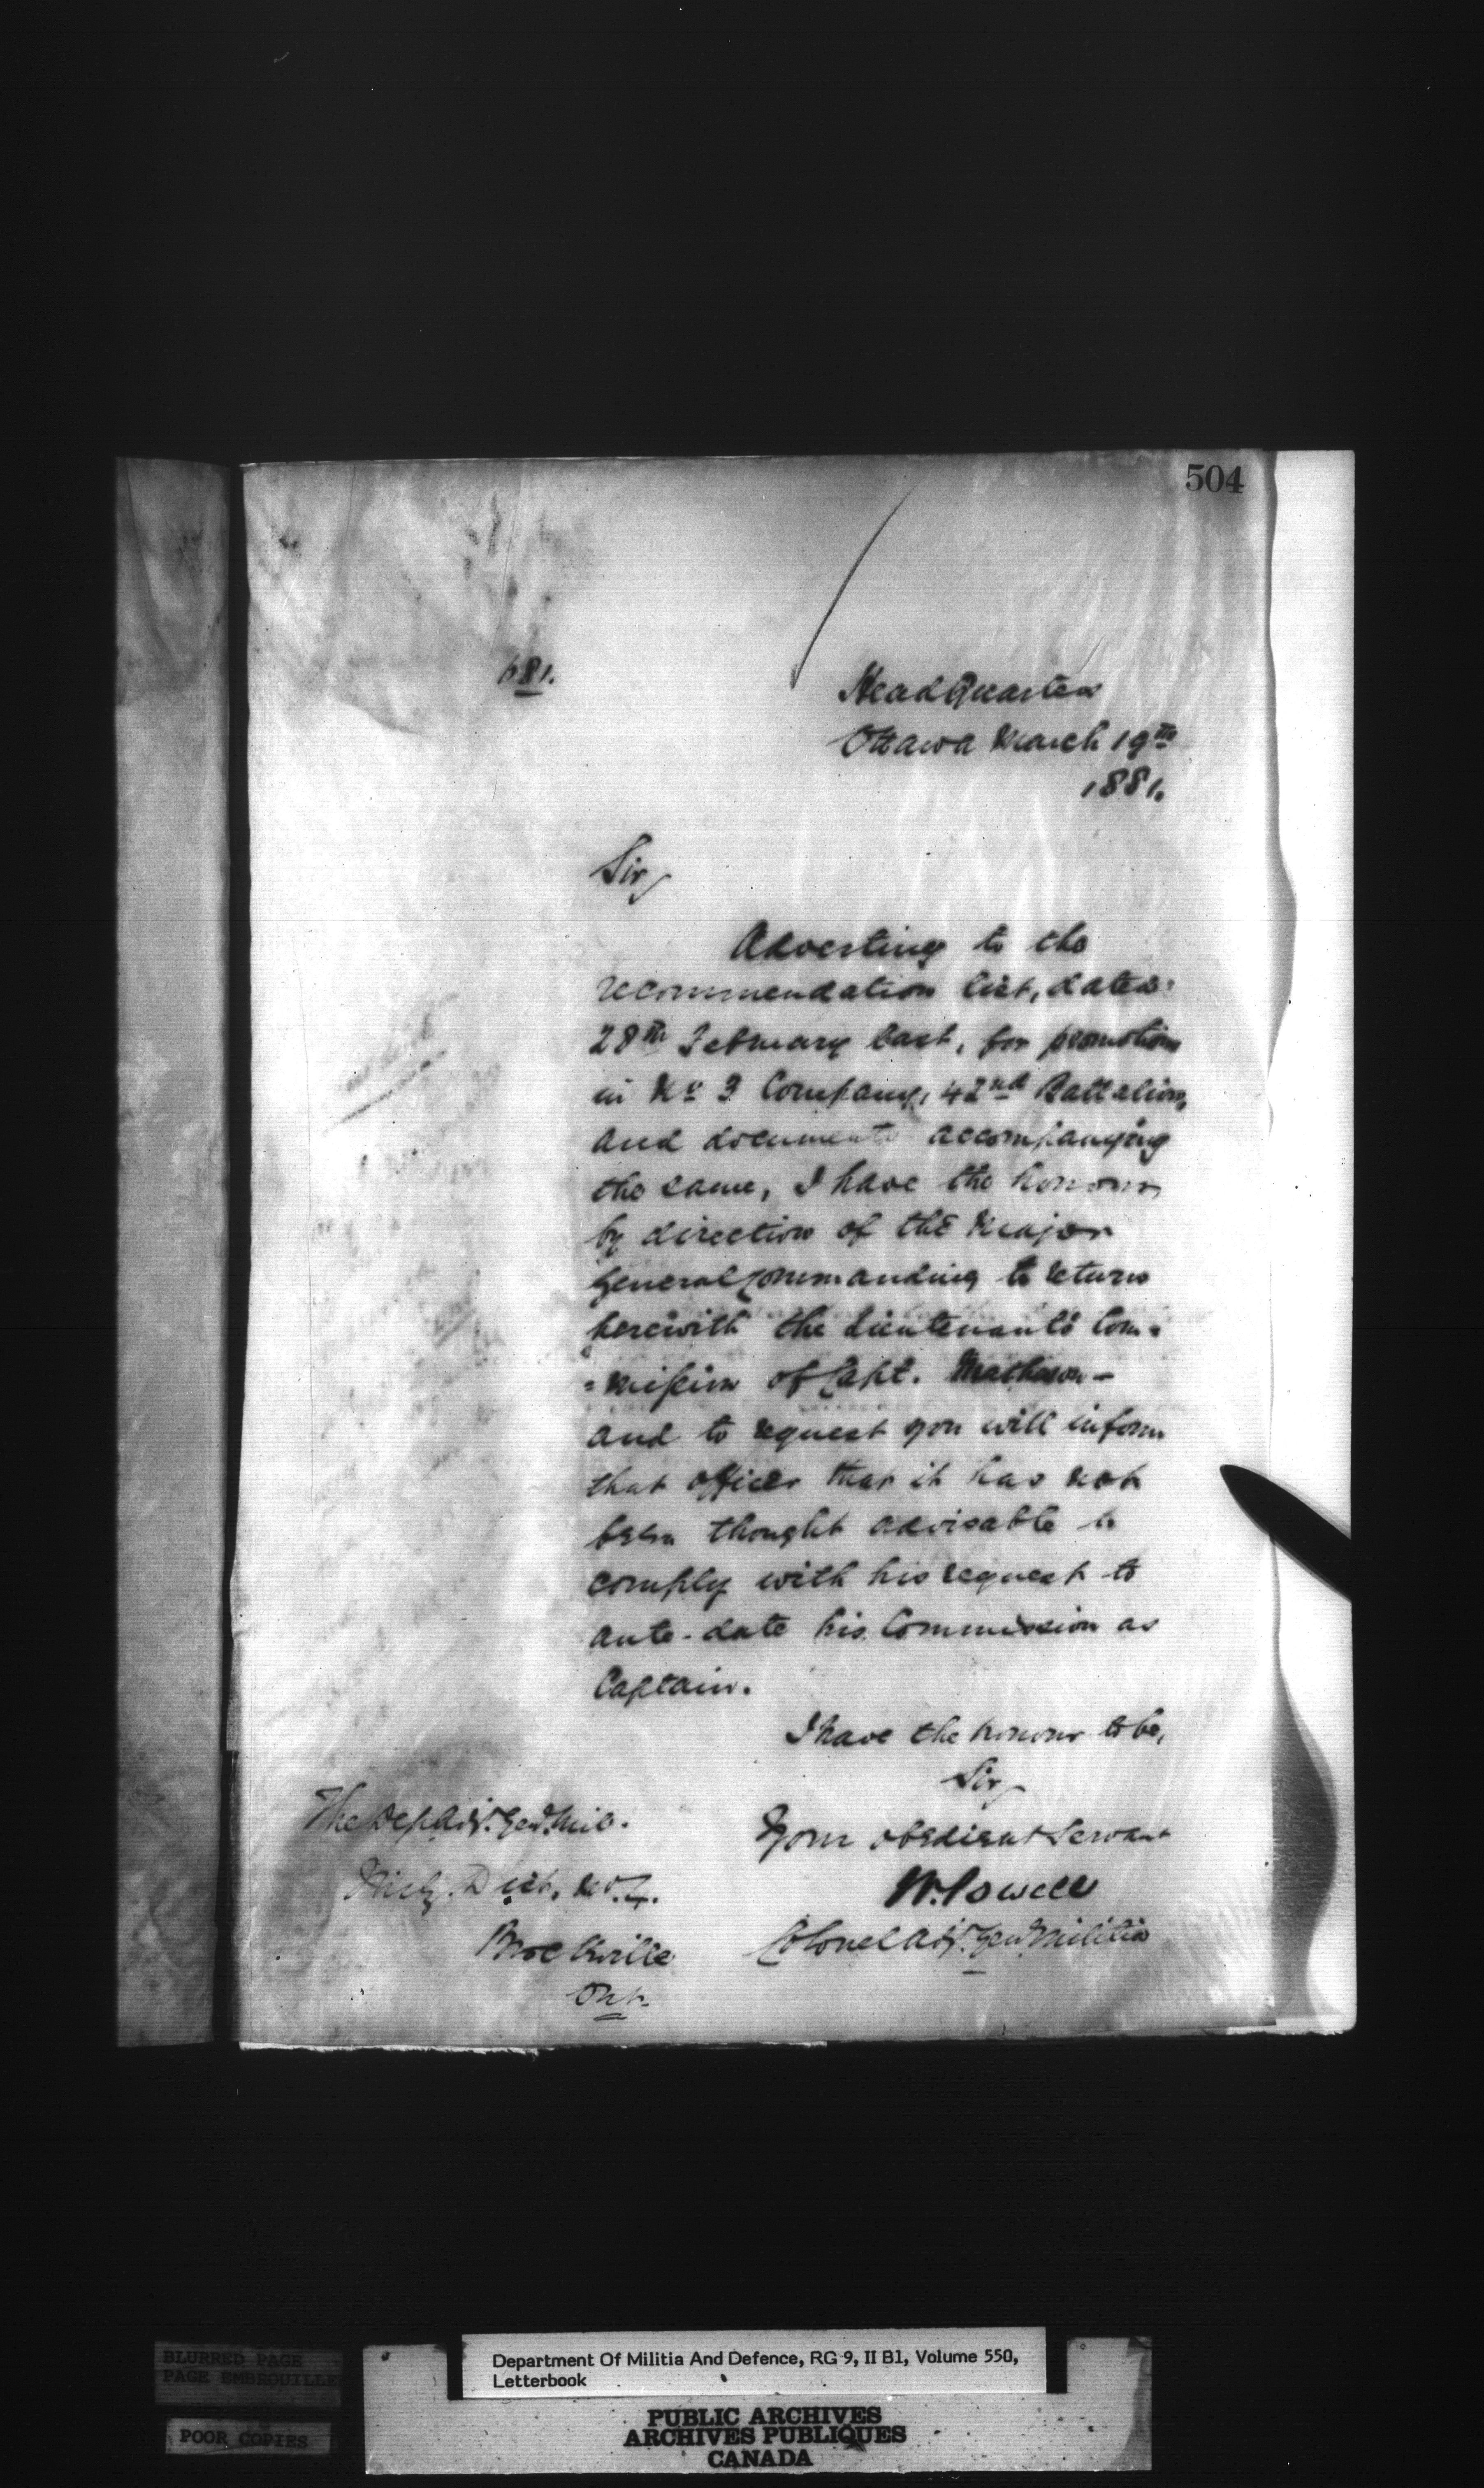 504
681.
HeadQuarters
Ottawa March 19th
1881.
Sir,
Adverting to the
recommendation list, dated
28th February last, for promotion
in No 3 Company, 42nd Battalion,
and documents accompanying
the same, I have the honour
by direction of the Major
General Commanding to return
herewith the Lieutenant's Com=
=mission of Capt. Matheson –
and to request you will inform
that officer that it has not
been thought advisable to
comply with his request to
ante-date his Commission as
Captain.
I have the honour to be,
Sir,
Your obedient Servant
W. Powell
Colonel Adjt. Genl. Militia
The Dep. Adjt. Genl. Mil.
Dist, No. 4.
Brockville
Ont.
BLURRED PAGE
PAGE EMBROUILLE
POOR COPIES
Department Of Militia And Defence, RG 9, II B1, Volume 550,
Letterbook
PUBLIC ARCHIVES
ARCHIVES PUBLIQUES
CANADA